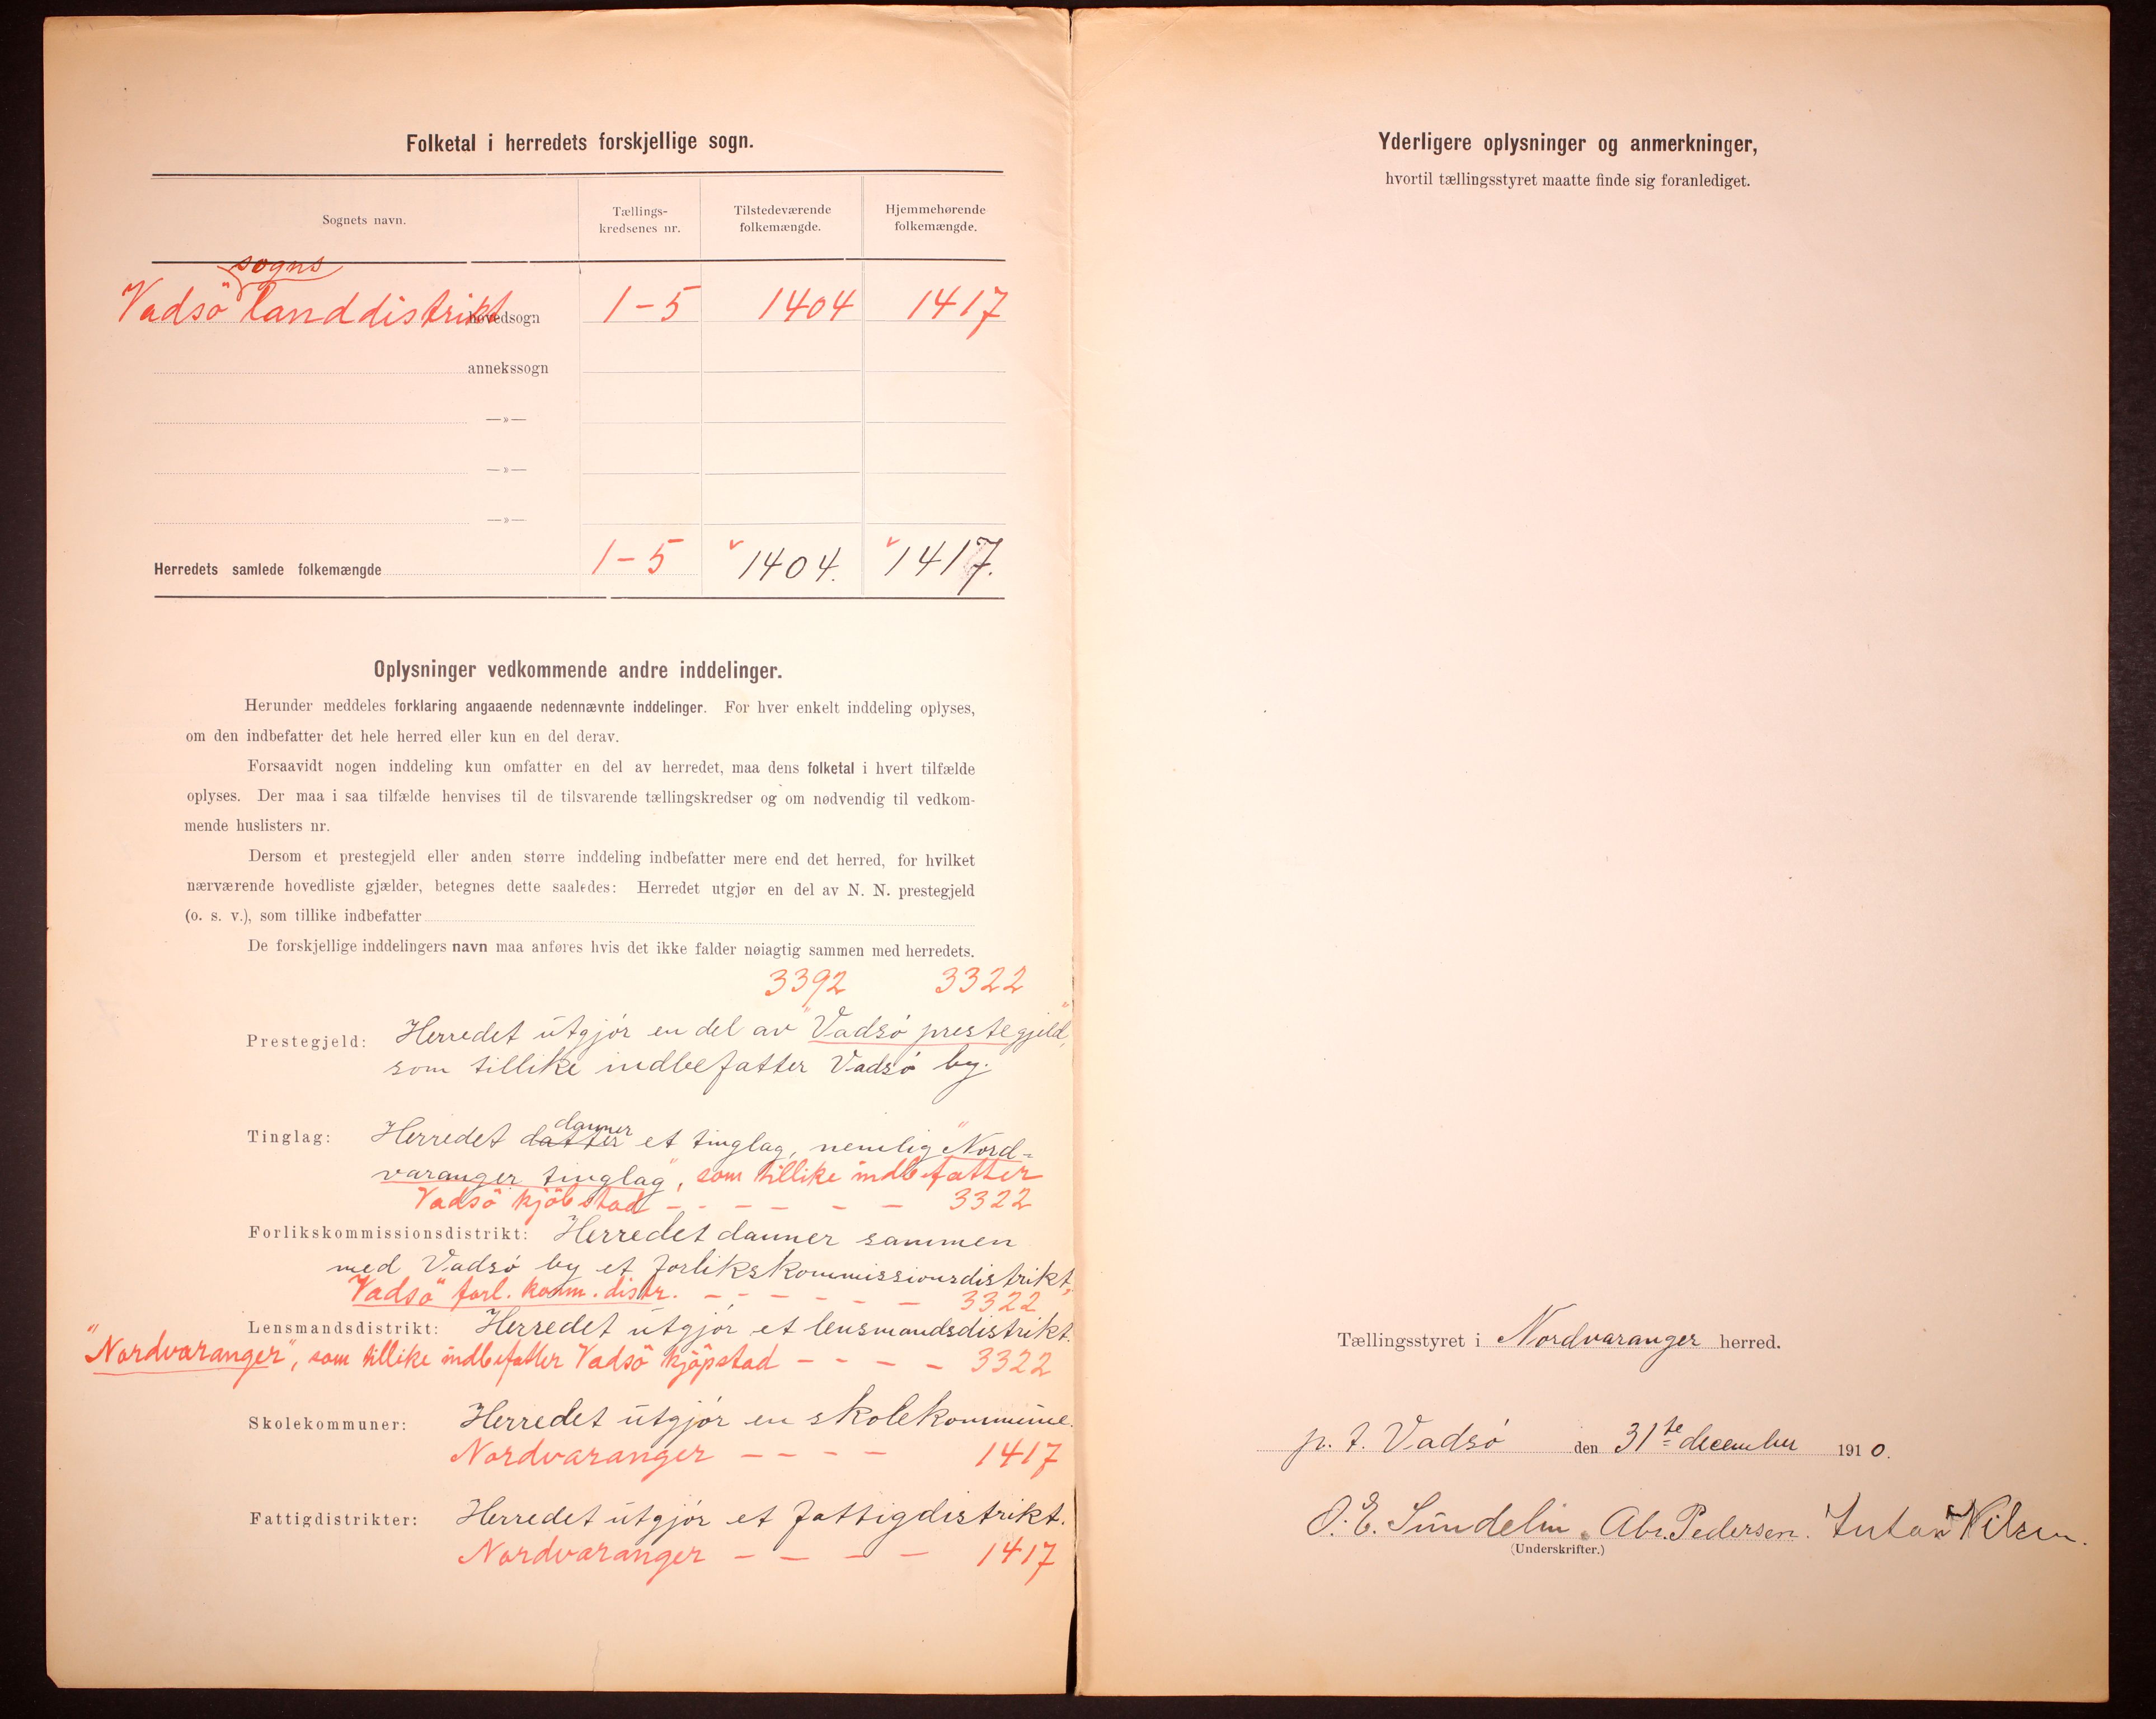 Folketal i herredets forskjellige sogn.
Sognets navn.
Tællings-
kredsenes nr.
Tilstedeværende
folkemængde.
Hjemmehørende
folkemængde.
sogns
Vadsö landdistrikt hovedsogn 1-5 1404 1417
annekssogn
—»—
—»—
—»—
Herredets samlede folkemængde 1-5 1404. 1417.
Oplysninger vedkommende andre inddelinger.
Herunder meddeles forklaring angaaende nedennævnte inddelinger. For hver enkelt inddeling oplyses,
om den indbefatter det hele herred eller kun en del derav.
Forsaavidt nogen inddeling kun omfatter en del av herredet, maa dens folketal i hvert tilfælde
oplyses. Der maa i saa tilfælde henvises til de tilsvarende tællingskredser og om nødvendig til vedkom-
mende huslisters nr.
Dersom et prestegjeld eller anden større inddeling indbefatter mere end det herred, for hvilket
nærværende hovedliste gjælder, betegnes dette saaledes: Herredet utgjør en del av N. N. prestegjeld
(o. s. v.), som tillike indbefatter
De forskjellige inddelingers navn maa anføres hvis det ikke falder nøiagtig sammen med herredets.
3392 3322
Prestegjeld: Herredet utgjór en del av "Vadsó prestegjeld",
som tillike indbefatter Vadsó by.
danner
Tinglag: Herredet datter et tinglag, nemlig "Nord-
varanger tinglag", som tillike indbefatter
Vadsö kjöbstad - - - - - - 3322
Forlikskommissionsdistrikt: Herredet danner sammen
med Vadsó by et forlikskommissionsdistrikt,
Vadsö" forl. komm. distr. - - - - - - 3322
Lensmandsdistrikt: Herredet utgjór et lensmandsdistrikt.
"Nordvaranger", som tillike indbefatter Vadsö kjöpstad - - - - 3322
Skolekommuner: Herredet utgjór en skolekommune.
Nordvaranger - - - - 1417
Fattigdistrikter: Herredet utgjór et fattigdistrikt.
Nordvaranger - - - - 1417
Yderligere oplysninger og anmerkninger,
hvortil tællingsstyret maatte finde sig foranlediget.
Tællingsstyret i Nordvaranger herred.
p. t. Vadsó den 31te december 1910.
O. E. Sundelin. Abr. Pedersen. Anton Nilsen.
(Underskrifter.)